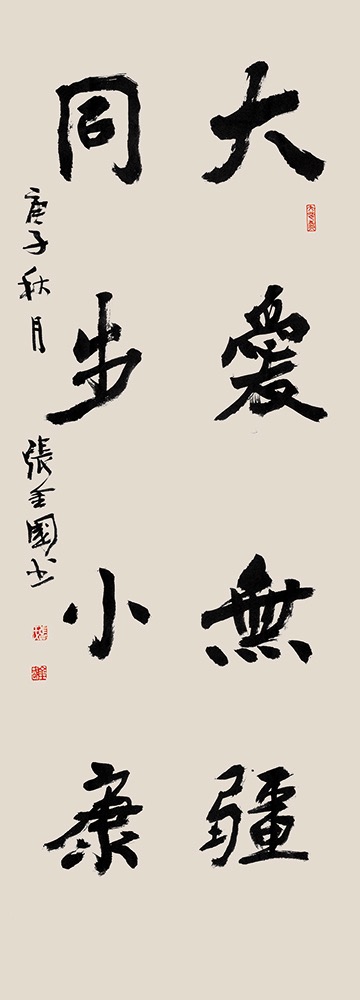 大愛無疆
同步小康
庚子秋月 張金國书